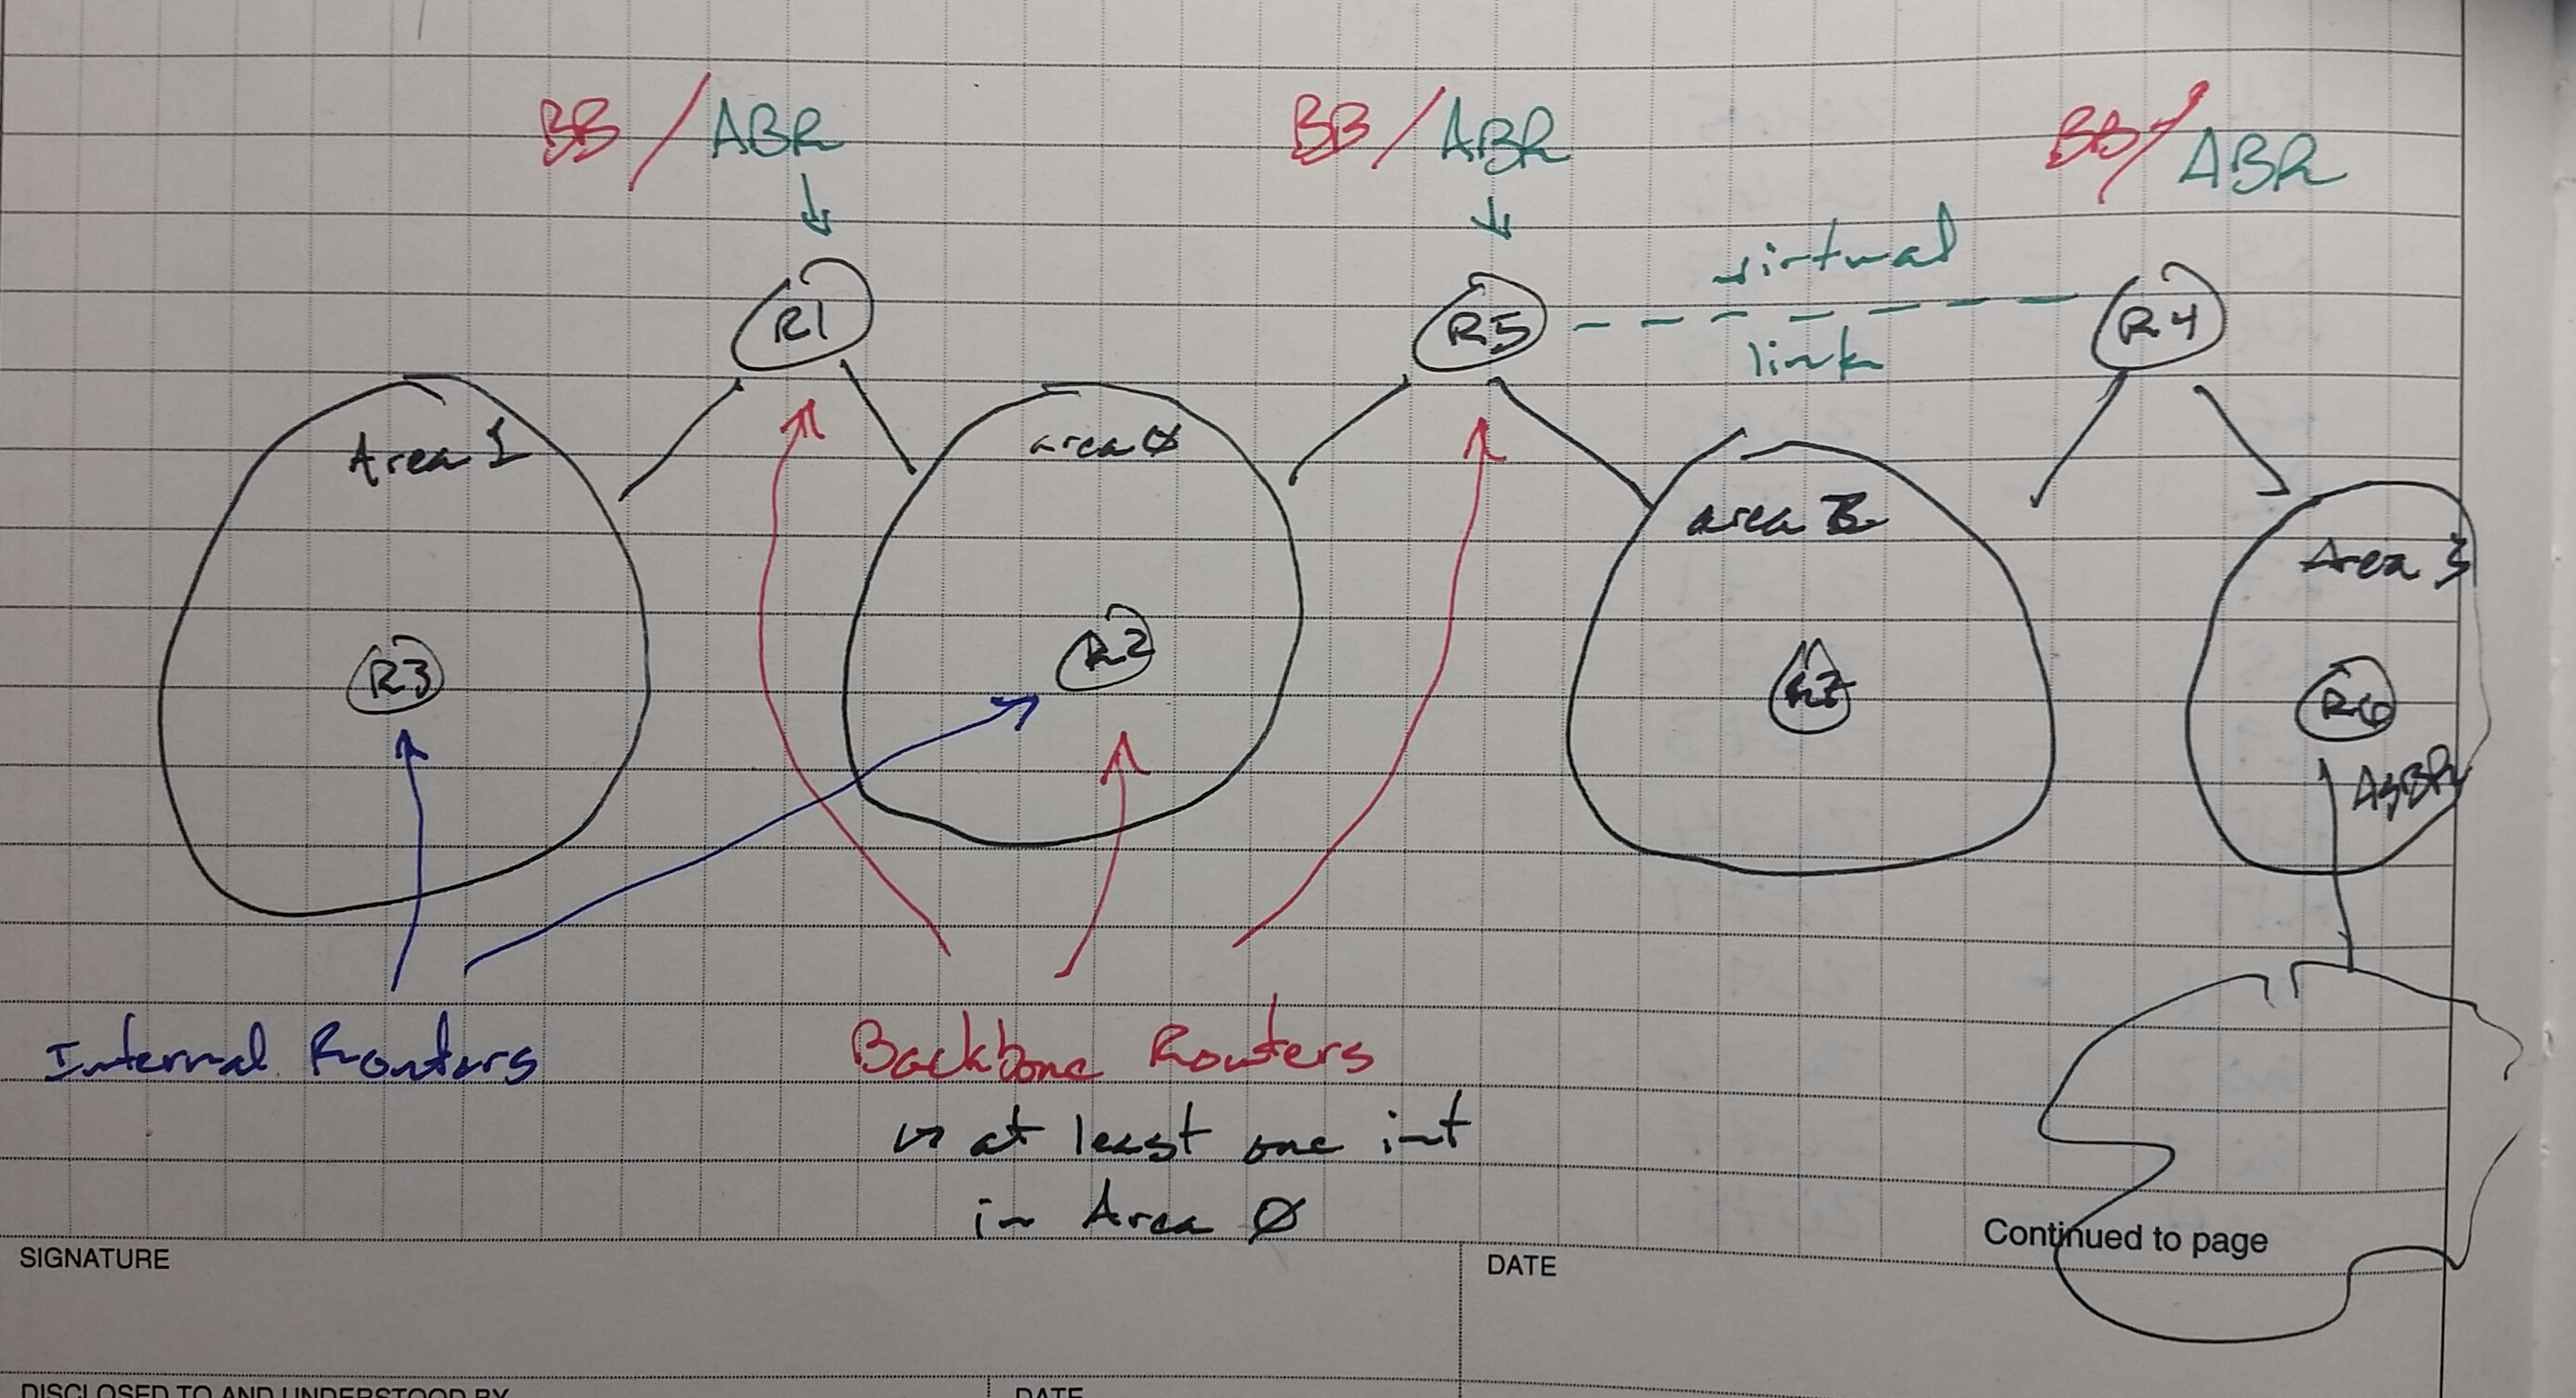 BB / ABR
BB / ABR
BB / ABR
virtual
link
R1
R5
R4
Area 1
area 0
area 2
Area 3
R3
R2
R7
R6
ASBR
Internal Routers
Backbone Routers
↳ at least one int
in Area 0
Continued to page
SIGNATURE
DATE
DISCLOSED TO AND UNDERSTOOD BY
DATE